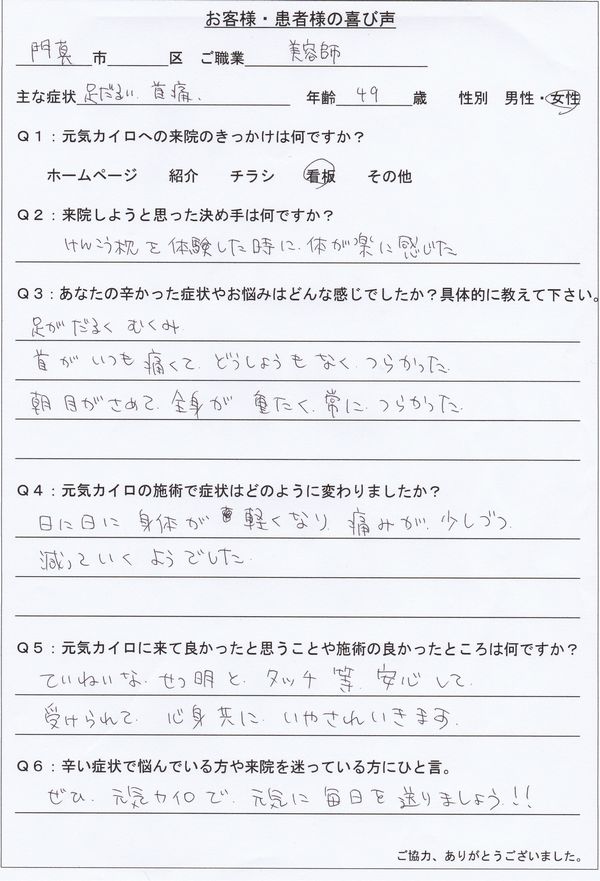 お客様・患者様の喜び声
門真市 区 ご職業 美容師
主な症状 足だるい、首痛、 年齢 49 歳 性別 男性・女性
Q1：元気カイロへの来院のきっかけは何ですか？
ホームページ 紹介 チラシ 看板 その他
Q2：来院しようと思った決め手は何ですか？
けんこう枕を体験した時に、体が楽に感じた
Q3：あなたの辛かった症状やお悩みはどんな感じでしたか？具体的に教えて下さい。
足がだるく むくみ
首がいつも痛くて、どうしようもなく、つらかった
朝目がさめて、全身が重たく、常に、つらかった
Q4：元気カイロの施術で症状はどのように変わりましたか？
日に日に身体が軽くなり、痛みが、少しづつ
減っていくようでした
Q5：元気カイロに来て良かったと思うことや施術の良かったところは何ですか？
ていねいな、せつ明と、タッチ等、安心して、
受けられて、心身共に、いやされいきます。
Q6：辛い症状で悩んでいる方や来院を迷っている方にひと言。
ぜひ、元気カイロで、元気に毎日を送りましょう!!
ご協力、ありがとうございました。